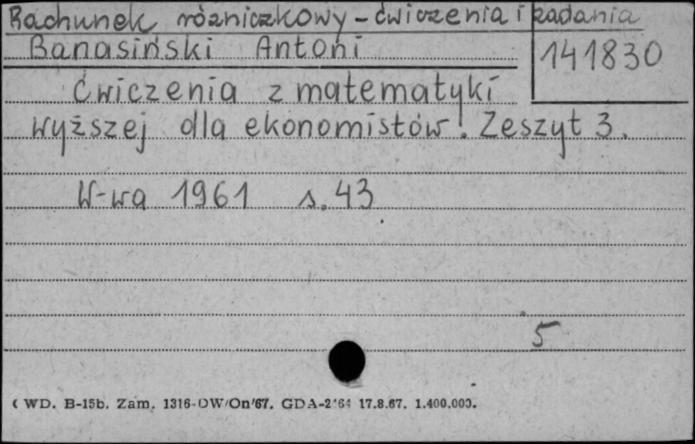 Rachunek różniczkowy - ćwiczenia i zadania
Banasiński Antoni
141830
Ćwiczenia z matematyki
wyższej dla ekonomistów. Zeszyt 3.
W-wa 1961 s. 43
5
WD. B-15b. Zam. 1316-OW/On/67. GDA-2'64 17.8.67. 1.400.000.